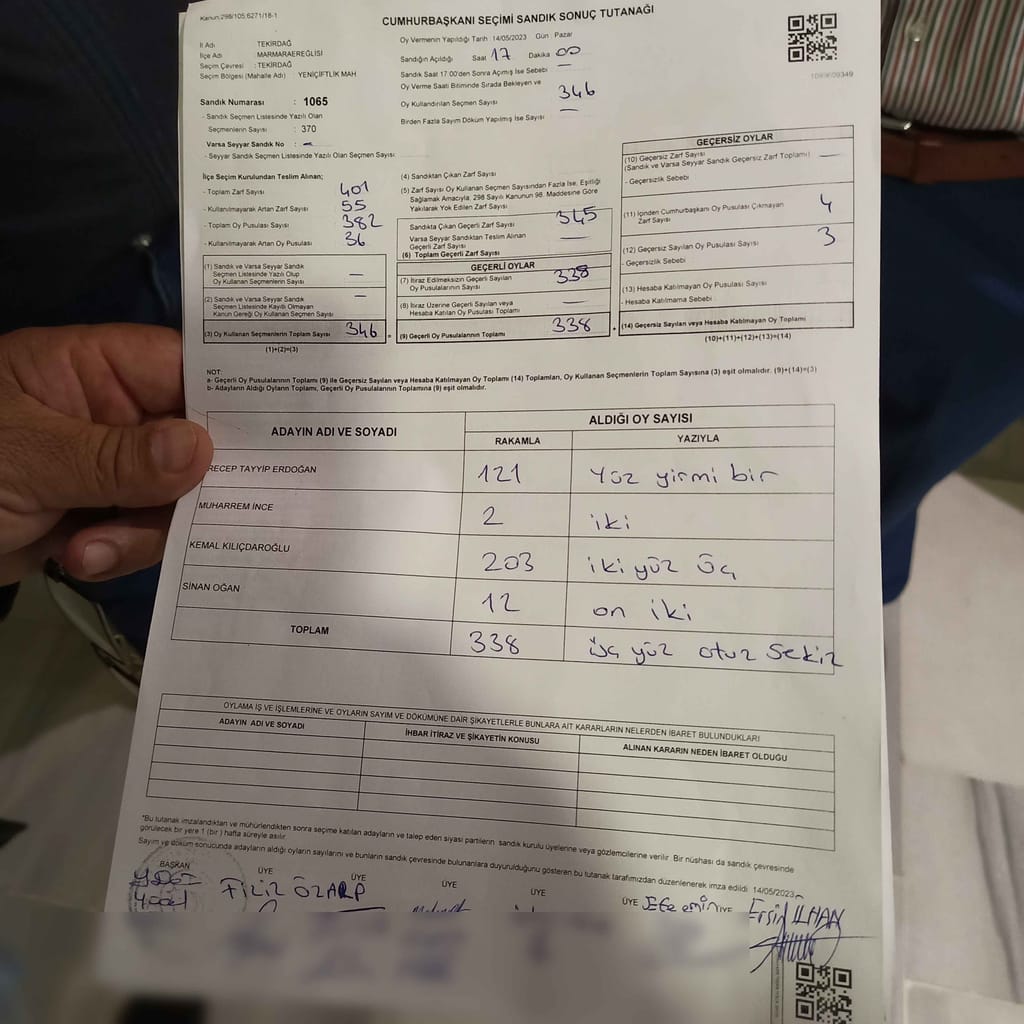 Kanun:298/105;6271/18-1
CUMHURBAŞKANI SEÇİMİ SANDIK SONUÇ TUTANAĞI
İl Adı : TEKİRDAĞ
İlçe Adı : MARMARAEREĞLİSİ
Seçim Çevresi : TEKİRDAĞ
Seçim Bölgesi (Mahalle Adı) YENİÇİFTLİK MAH
Sandık Numarası : 1065
- Sandık Seçmen Listesinde Yazılı Olan
Seçmenlerin Sayısı : 370
Varsa Seyyar Sandık No : -
- Seyyar Sandık Seçmen Listesinde Yazılı Olan Seçmen Sayısı
Oy Vermenin Yapıldığı Tarih : 14/05/2023 Gün : Pazar
Sandığın Açıldığı Saat 17 Dakika 00
Sandık Saat 17:00'den Sonra Açımış İse Sebebi —
Oy Verme Saati Bitiminde Sırada Bekleyen ve
Oy Kullandırılan Seçmen Sayısı 346
Birden Fazla Sayım Döküm Yapılmış İse Sayısı —
İlçe Seçim Kurulundan Teslim Alınan;
- Toplam Zarf Sayısı 401
- Kullanılmayarak Artan Zarf Sayısı 55
- Toplam Oy Pusulası Sayısı 382
- Kullanılmayarak Artan Oy Pusulası 36
(1) Sandık ve Varsa Seyyar Sandık
Seçmen Listesinde Yazılı Olup
Oy Kullanan Seçmenlerin Sayısı —
(2) Sandık ve Varsa Seyyar Sandık
Seçmen Listesinde Kayıtlı Olmayan
Kanun Gereği Oy Kullanan Seçmen Sayısı —
(3) Oy Kullanan Seçmenlerin Toplam Sayısı 346
(1)+(2)=(3)
(4) Sandıktan Çıkan Zarf Sayısı
(5) Zarf Sayısı Oy Kullanan Seçmen Sayısından Fazla İse, Eşitliği
Sağlamak Amacıyla; 298 Sayılı Kanunun 98. Maddesine Göre
Yakılarak Yok Edilen Zarf Sayısı
Sandıkta Çıkan Geçerli Zarf Sayısı 345
Varsa Seyyar Sandıktan Teslim Alınan
Geçerli Zarf Sayısı —
(6) Toplam Geçerli Zarf Sayısı
GEÇERLİ OYLAR
(7) İtiraz Edilmeksizin Geçerli Sayılan
Oy Pusulasının Sayısı 338
(8) İtiraz Üzerine Geçerli Sayılan veya
Hesaba Katılan Oy Pusulası Toplamı —
(9) Geçerli Oy Pusulalarının Toplamı 338
GEÇERSİZ OYLAR
(10) Geçersiz Zarf Sayısı
(Sandık ve Varsa Seyyar Sandık Geçersiz Zarf Toplamı) —
- Geçersizlik Sebebi
(11) İçinden Cumhurbaşkanı Oy Pusulası Çıkmayan
Zarf Sayısı 4
(12) Geçersiz Sayılan Oy Pusulası Sayısı 3
- Geçersizlik Sebebi
(13) Hesaba Katılmayan Oy Pusulası Sayısı
- Hesaba Katılmama Sebebi
(14) Geçersiz Sayılan veya Hesaba Katılmayan Oy Toplamı
(10)+(11)+(12)+(13)=(14)
NOT:
a- Geçerli Oy Pusulalarının Toplamı (9) ile Geçersiz Sayılan veya Hesaba Katılmayan Oy Toplamı (14) Toplamları, Oy Kullanan Seçmenlerin Toplam Sayısına (3) eşit olmalıdır. (9)+(14)=(3)
b- Adayların Aldığı Oyların Toplamı, Geçerli Oy Pusulalarının Toplamına (9) eşit olmalıdır.
ADAYIN ADI VE SOYADI
ALDIĞI OY SAYISI
RAKAMLA YAZIYLA
RECEP TAYYİP ERDOĞAN 121 Yüz yirmi bir
MUHARREM İNCE 2 iki
KEMAL KILIÇDAROĞLU 203 iki yüz üç
SİNAN OĞAN 12 on iki
TOPLAM 338 üç yüz otuz sekiz
OYLAMA İŞ VE İŞLEMLERİNE VE OYLARIN SAYIM VE DÖKÜMÜNE DAİR ŞİKAYETLERLE BUNLARA AİT KARARLARIN NELERDEN İBARET BULUNDUKLARI
ADAYIN ADI VE SOYADI İHBAR İTİRAZ VE ŞİKAYETİN KONUSU ALINAN KARARIN NEDEN İBARET OLDUĞU
*Bu tutanak imzalandıktan ve mühürlendikten sonra seçime katılan adayların ve talep eden siyasi partilerin sandık kurulu üyelerine veya gözlemcilerine verilir. Bir nüshası da sandık çevresinde
görülecek bir yere 1 (bir) hafta süreyle asılır.
Sayım ve döküm sonucunda adayların aldığı oyların sayılarını ve bunların sandık çevresinde bulunanlara duyurulduğunu gösteren bu tutanak tarafımızdan düzenlenerek imza edildi 14/05/2023
BAŞKAN ÜYE ÜYE ÜYE ÜYE ÜYE
FİLİZ ÖZARP
Ersin İLHAN